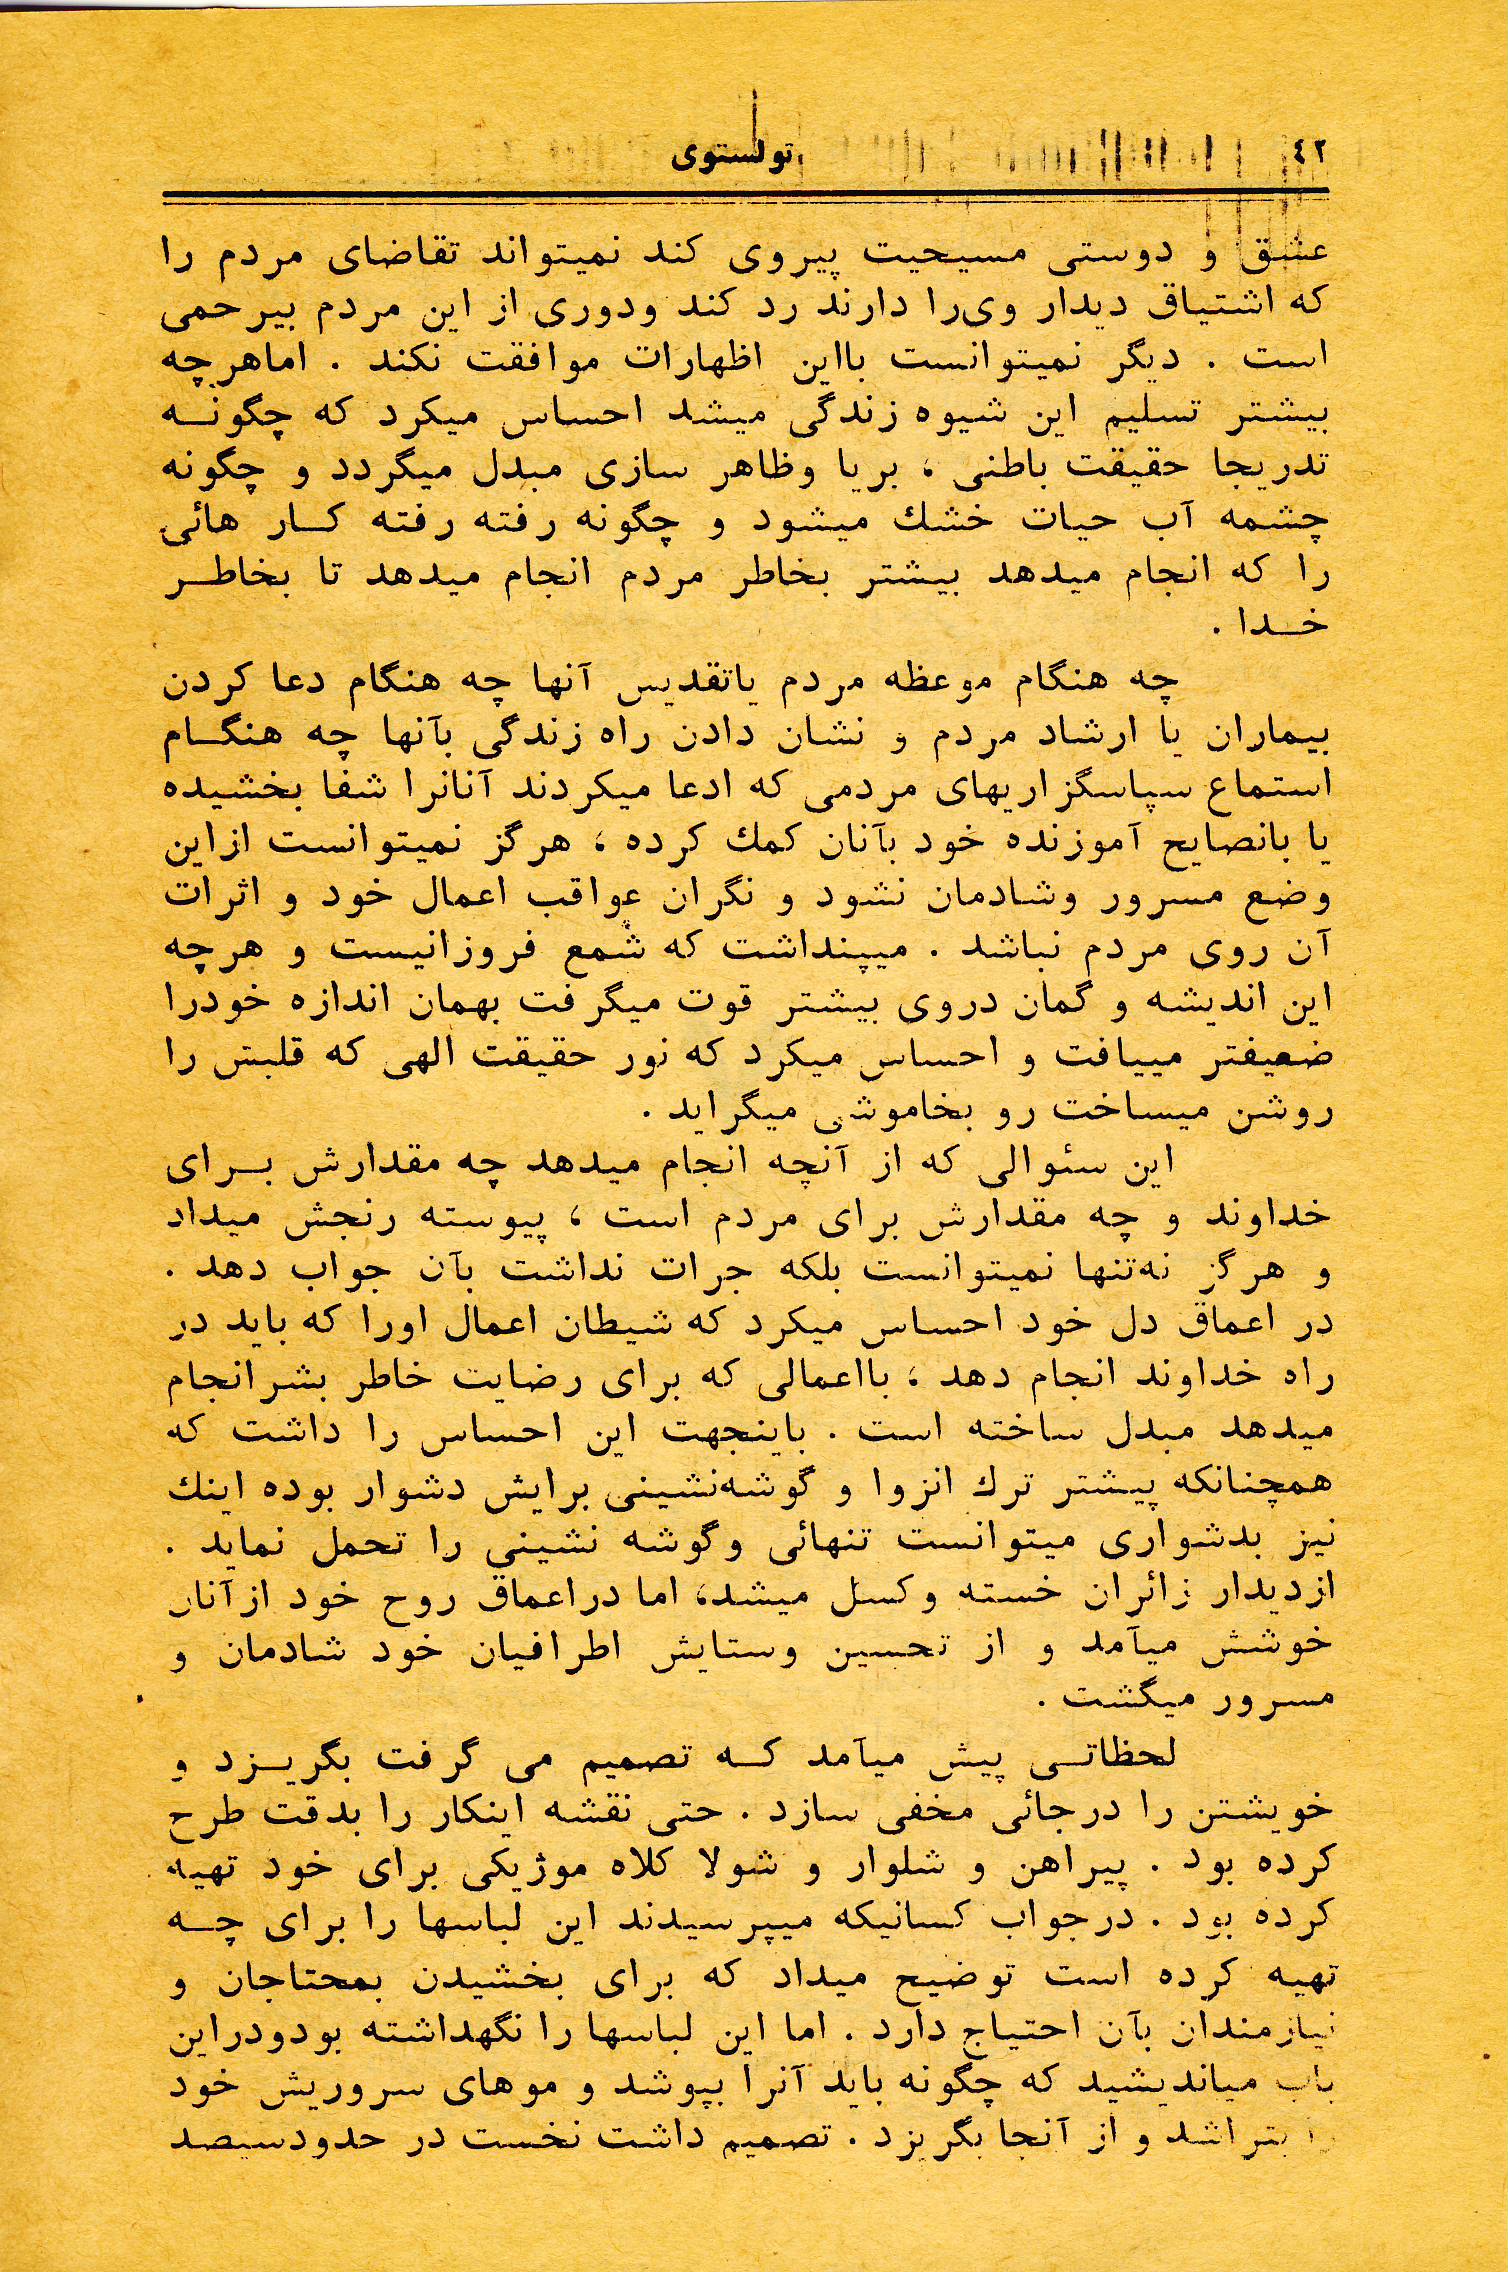 ٤٢
تولستوی
عشق و دوستی مسیحیت پیروی کند نمیتواند تقاضای مردم را
که اشتیاق دیدار وی‌را دارند رد کند ودوری از این مردم بیرحمی
است . دیگر نمیتوانست بااین اظهارات موافقت نکند . اماهرچه
بیشتر تسلیم این شیوه زندگی میشد احساس میکرد که چگونـه
تدریجا حقیقت باطنی ، بریا وظاهر سازی مبدل میگردد و چگونه
چشمه آب حیات خشك میشود و چگونه رفته رفته کـار هائی
را که انجام میدهد بیشتر بخاطر مردم انجام میدهد تا بخاطـر
خـدا .
چه هنگام موعظه مردم یاتقدیس آنها چه هنگام دعا کردن
بیماران یا ارشاد مردم و نشان دادن راه زندگی بآنها چه هنگـام
استماع سپاسگزاریهای مردمی که ادعا میکردند آنانرا شفا بخشیده
یا بانصایح آموزنده خود بآنان کمك کرده ، هرگز نمیتوانست ازاین
وضع مسرور وشادمان نشود و نگران عواقب اعمال خود و اثرات
آن روی مردم نباشد . میپنداشت که شمع فروزانیست و هرچه
این اندیشه و گمان دروی بیشتر قوت میگرفت بهمان اندازه خودرا
ضعیفتر مییافت و احساس میکرد که نور حقیقت الهی که قلبش را
روشن میساخت رو بخاموشی میگراید .
این سئوالی که از آنچه انجام میدهد چه مقدارش بـرای
خداوند و چه مقدارش برای مردم است ، پیوسته رنجش میداد
و هرگز نه‌تنها نمیتوانست بلکه جرات نداشت بآن جواب دهد .
در اعماق دل خود احساس میکرد که شیطان اعمال اورا که باید در
راه خداوند انجام دهد ، بااعمالی که برای رضایت خاطر بشرانجام
میدهد مبدل ساخته است . باینجهت این احساس را داشت که
همچنانکه پیشتر ترك انزوا و گوشه‌نشینی برایش دشوار بوده اینك
نیز بدشواری میتوانست تنهائی وگوشه نشینی را تحمل نماید .
ازدیدار زائران خسته وکسل میشد، اما دراعماق روح خود ازآنان
خوشش میآمد و از تحسین وستایش اطرافیان خود شادمان و
مسرور میگشت .
لحظاتـی پیش میآمد کـه تصمیم می گرفت بگریـزد و
خویشتن را درجائی مخفی سازد . حتی نقشه اینکار را بدقت طرح
کرده بود . پیراهن و شلوار و شولا کلاه موژیکی برای خود تهیه
کرده بود . درجواب کسانیکه میپرسیدند این لباسها را برای چـه
تهیه کرده است توضیح میداد که برای بخشیدن بمحتاجان و
نیازمندان بآن احتیاج دارد . اما این لباسها را نگهداشته بودودراین
باب میاندیشید که چگونه باید آنرا بپوشد و موهای سروریش خود
را بتراشد و از آنجا بگریزد . تصمیم داشت نخست در حدودسیصد